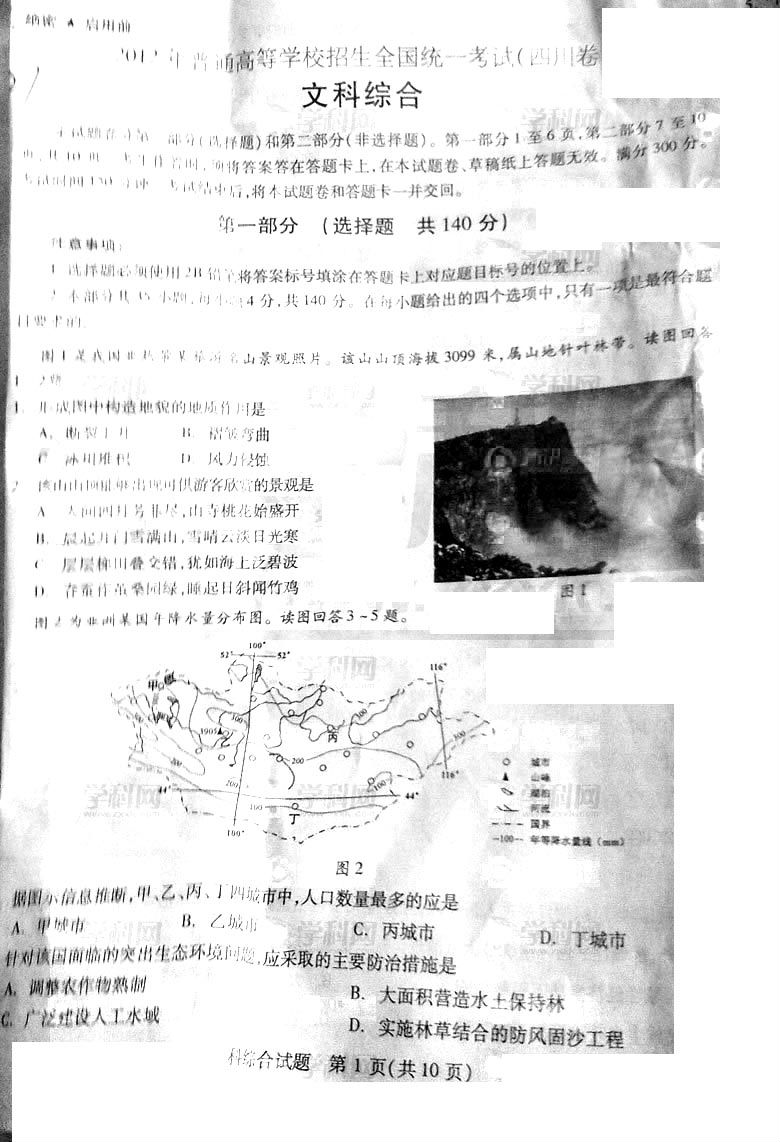 绝密 ★ 启用前
2012年普通高等学校招生全国统一考试(四川卷
文科综合
本试题卷分第一部分(选择题)和第二部分(非选择题)。第一部分1至6页,第二部分7至10
页,共10页。考生作答时,须将答案答在答题卡上,在本试题卷、草稿纸上答题无效。满分300分。
考试时间150分钟。考试结束后,将本试题卷和答题卡一并交回。
第一部分 (选择题 共140分)
注意事项:
1.选择题必须使用2B铅笔将答案标号填涂在答题卡上对应题目标号的位置上。
2.本部分共35小题,每小题4分,共140分。在每小题给出的四个选项中,只有一项是最符合题
目要求的。
图1是我国亚热带某旅游名山景观照片。该山山顶海拔3099米,属山地针叶林带。读图回答
1 2题
1.形成图中构造地貌的地质作用是
A.断裂上升 B.褶皱弯曲
C.冰川堆积 D.风力侵蚀
图1
2.该山山顶能够出现可供游客欣赏的景观是
A.人间四月芳菲尽,山寺桃花始盛开
B.晨起开门雪满山,雪晴云淡日光寒
C.层层梯田叠交错,犹如海上泛碧波
D.春蚕作茧桑园绿,睡起日斜闻竹鸡
图2为亚洲某国年降水量分布图。读图回答3~5题。
100°
52° 52°
116°
甲
100
1905
丙
100
200
300
200
100
116°
44° 44°
100
丁
100°
城市
山峰
湖泊
河流
国界
-100- 年等降水量线(mm)
图2
据图示信息推断,甲、乙、丙、丁四城市中,人口数量最多的应是
A.甲城市 B.乙城市 C.丙城市 D.丁城市
针对该国面临的突出生态环境问题,应采取的主要防治措施是
A.调整农作物熟制 B.大面积营造水土保持林
C.广泛建设人工水域 D.实施林草结合的防风固沙工程
科综合试题 第1页(共10页)